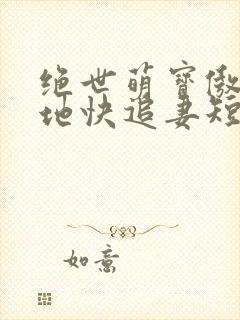 绝世萌宝傲
地快追妻短
如意